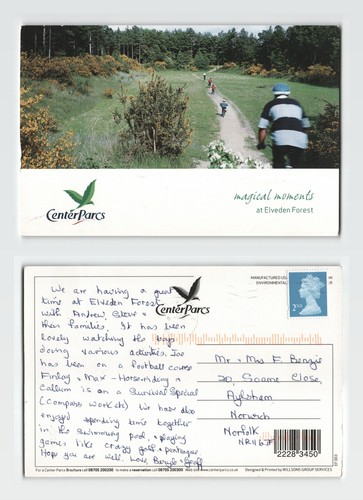 CenterParcs
magical moments
at Elveden Forest
We are having a great
time at Elveden Forest
with Andrew, Steve &
their families. It has been
lovely watching the boys
doing various activities. Joe
has been on a football course
Finlay & Max - Horseriding &
Callum is on a Survival Special
(compass work etc) We have also
enjoyed spending time together
in the swimming pool, & playing
games like crazy golf &
Hope you are well. Love Beryl & Geoff
CenterParcs
MANUFACTURED US
ENVIRONMENTAL
2ND
Mr & Mrs F.
20, Soame Close,
Aylsham
Norwich
Norfolk
NR11 6JF
2228 3450
For a Center Parcs Brochure call 08705 200200 to make a reservation call 08705 200300 Web www.centerparcs.co.uk
Designed & Printed by WILLSONS GROUP SERVICES